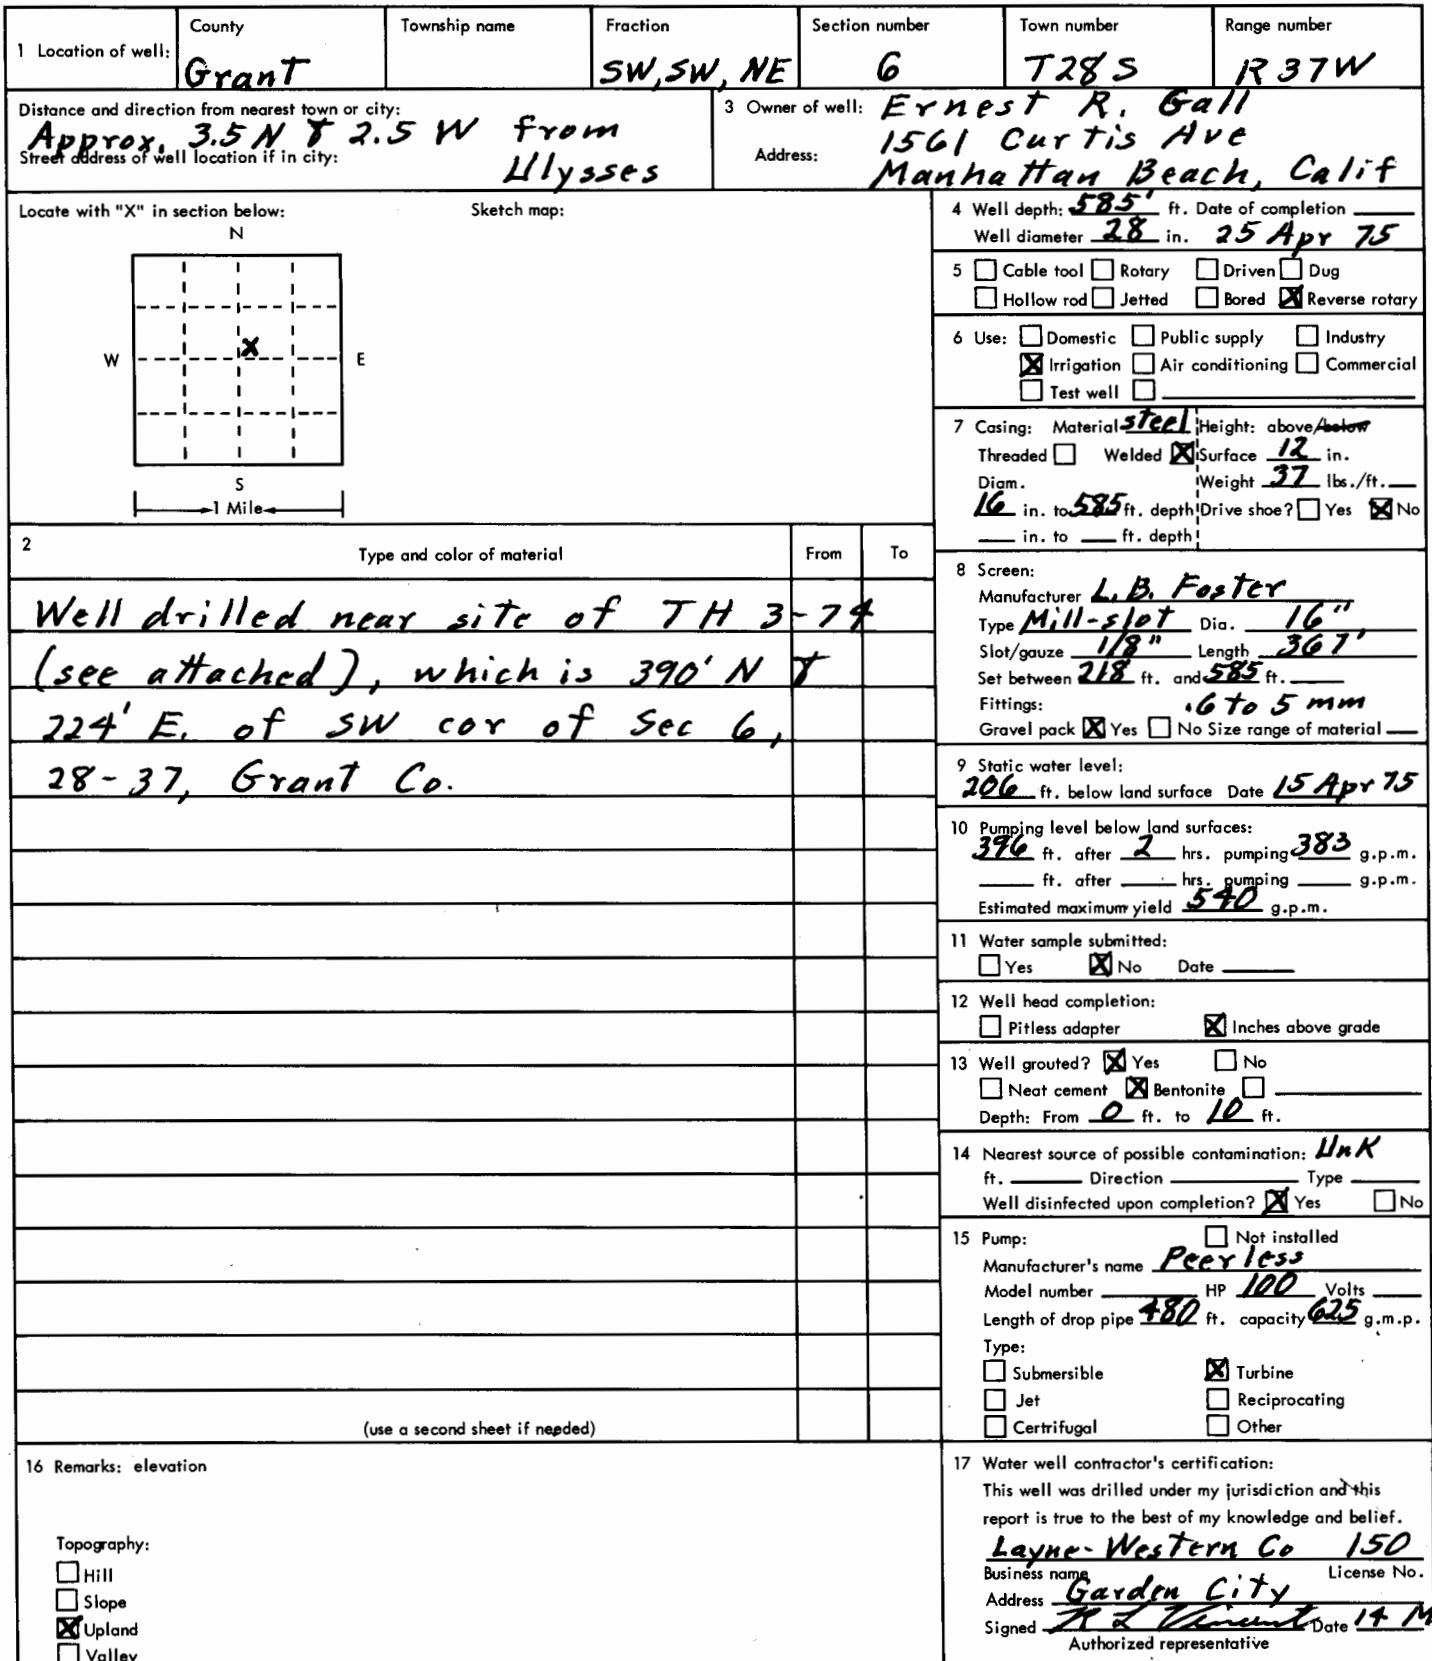 County Township name Fraction Section number Town number Range number
1 Location of well: Grant SW, SW, NE 6 T28S R37W
Distance and direction from nearest town or city:
Approx. 3.5 N & 2.5 W from
Street address of well location if in city:
Ulysses
3 Owner of well: Ernest R. Gall
1561 Curtis Ave
Address:
Manhattan Beach, Calif
Locate with "X" in section below: Sketch map:
N
X
W E
S
1 Mile
4 Well depth: 585' ft. Date of completion
Well diameter 28 in. 25 Apr 75
5 Cable tool Rotary Driven Dug
Hollow rod Jetted Bored X Reverse rotary
6 Use: Domestic Public supply Industry
X Irrigation Air conditioning Commercial
Test well
7 Casing: Material steel Height: above/below
Threaded Welded X Surface 12 in.
Diam. Weight 37 lbs./ft.
16 in. to 585 ft. depth Drive shoe? Yes X No
in. to ft. depth
2 Type and color of material From To
Well drilled near site of TH 3-74
(see attached), which is 390' N &
224' E. of SW cor of Sec 6,
28-37, Grant Co.
(use a second sheet if needed)
8 Screen:
Manufacturer L.B. Foster
Type Mill-slot Dia. 16"
Slot/gauze 1/8" Length 367'
Set between 218 ft. and 585 ft.
Fittings: .6 to 5 mm
Gravel pack X Yes No Size range of material
9 Static water level:
206 ft. below land surface Date 15 Apr 75
10 Pumping level below land surfaces:
396 ft. after 2 hrs. pumping 383 g.p.m.
ft. after hrs. pumping g.p.m.
Estimated maximum yield 540 g.p.m.
11 Water sample submitted:
Yes X No Date
12 Well head completion:
Pitless adapter X Inches above grade
13 Well grouted? X Yes No
Neat cement X Bentonite
Depth: From 0 ft. to 10 ft.
14 Nearest source of possible contamination: Unk
ft. Direction Type
Well disinfected upon completion? X Yes No
15 Pump: Not installed
Manufacturer's name Peerless
Model number HP 100 Volts
Length of drop pipe 480 ft. capacity 625 g.m.p.
Type:
Submersible X Turbine
Jet Reciprocating
Certrifugal Other
16 Remarks: elevation
Topography:
Hill
Slope
X Upland
Valley
17 Water well contractor's certification:
This well was drilled under my jurisdiction and this
report is true to the best of my knowledge and belief.
Layne-Western Co 150
Business name License No.
Address Garden City
Signed R L Vincent Date 14 M
Authorized representative